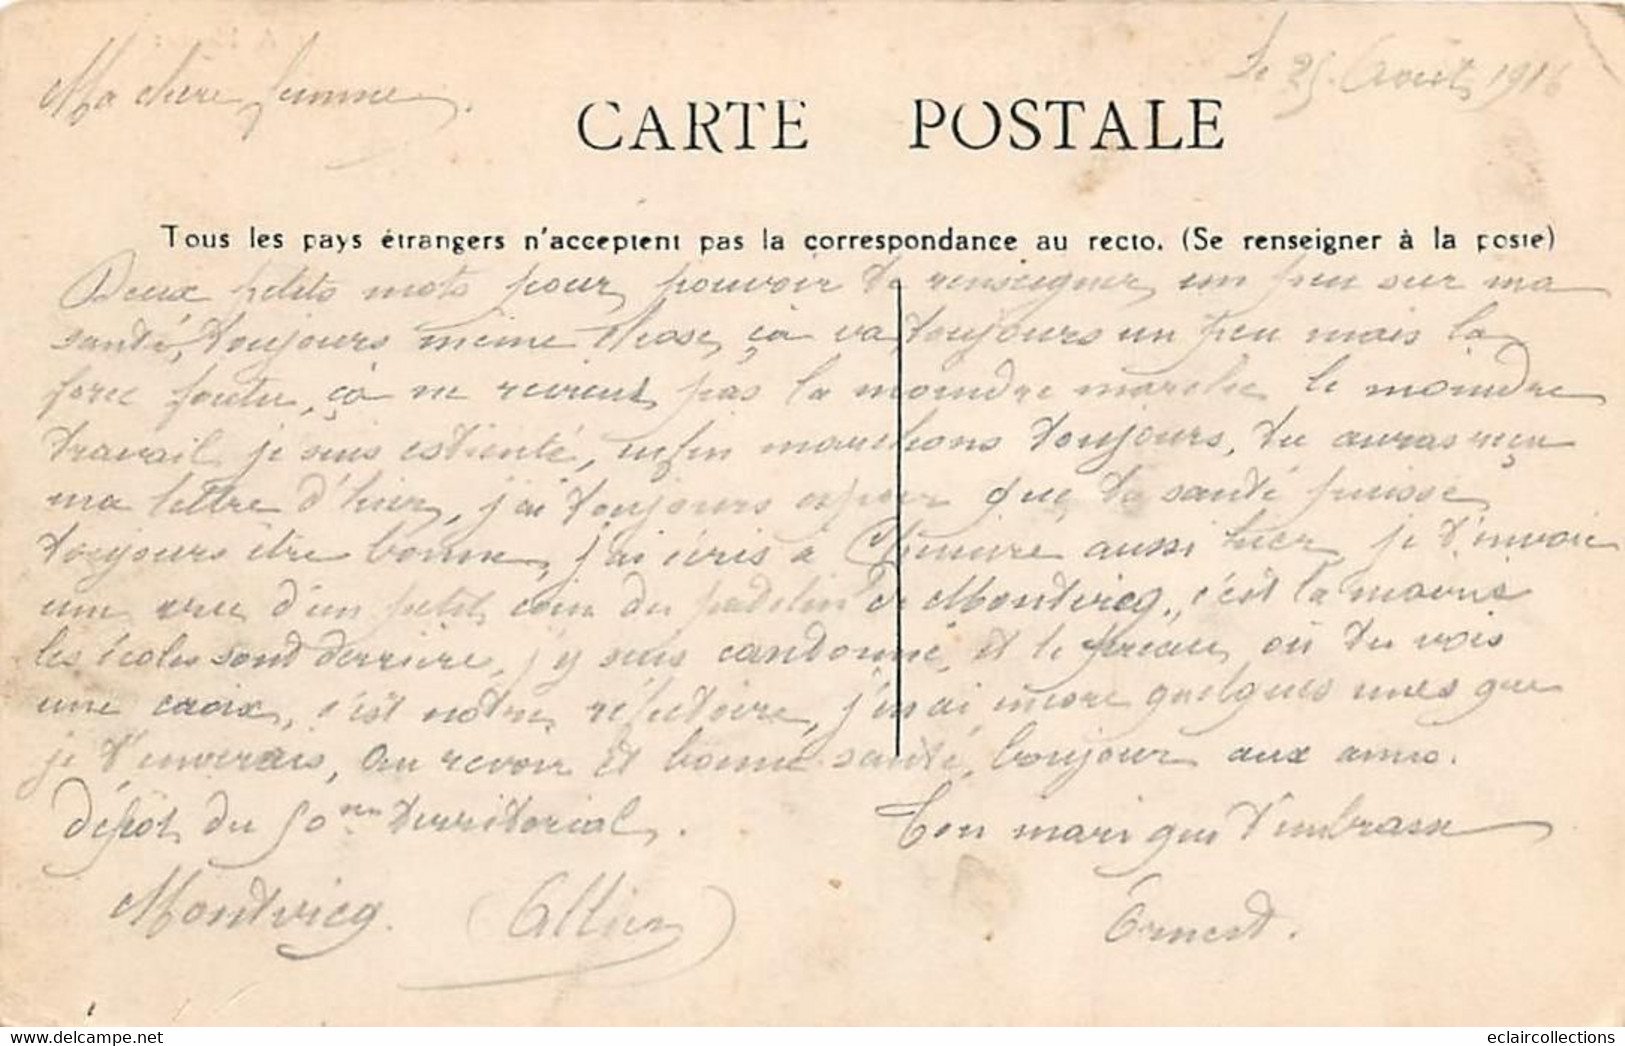 Le 25 Août 1916
Ma chère femme.
CARTE POSTALE
Tous les pays étrangers n'acceptent pas la correspondance au recto. (Se renseigner à la poste)
Deux petits mots pour pouvoir te renseigner un peu sur ma
santé, toujours même chose, çà va toujours un peu mais la
force, çà ne revient pas la moindre marche le moindre
travail je suis esseinté, enfin marchons toujours, tu auras reçu
ma lettre d'hier, j'ai toujours espoir que ta santé puisse
toujours être bonne, j'ai écris à aussi hier, je t'envoie
une vue d'un petit coin du patelin de Montvicq, c'est la mairie
les écoles sont derrière, j'y suis cantonné, et le préau où tu vois
une croix, c'est notre réfectoire, j'en ai encore quelques unes que
je t'enverrais, Au revoir et bonne santé, bonjour aux amis.
dépôt du 50ème territorial. Ton mari qui t'embrasse
Montvicq. (Allier) Ernest.
eclaircollections